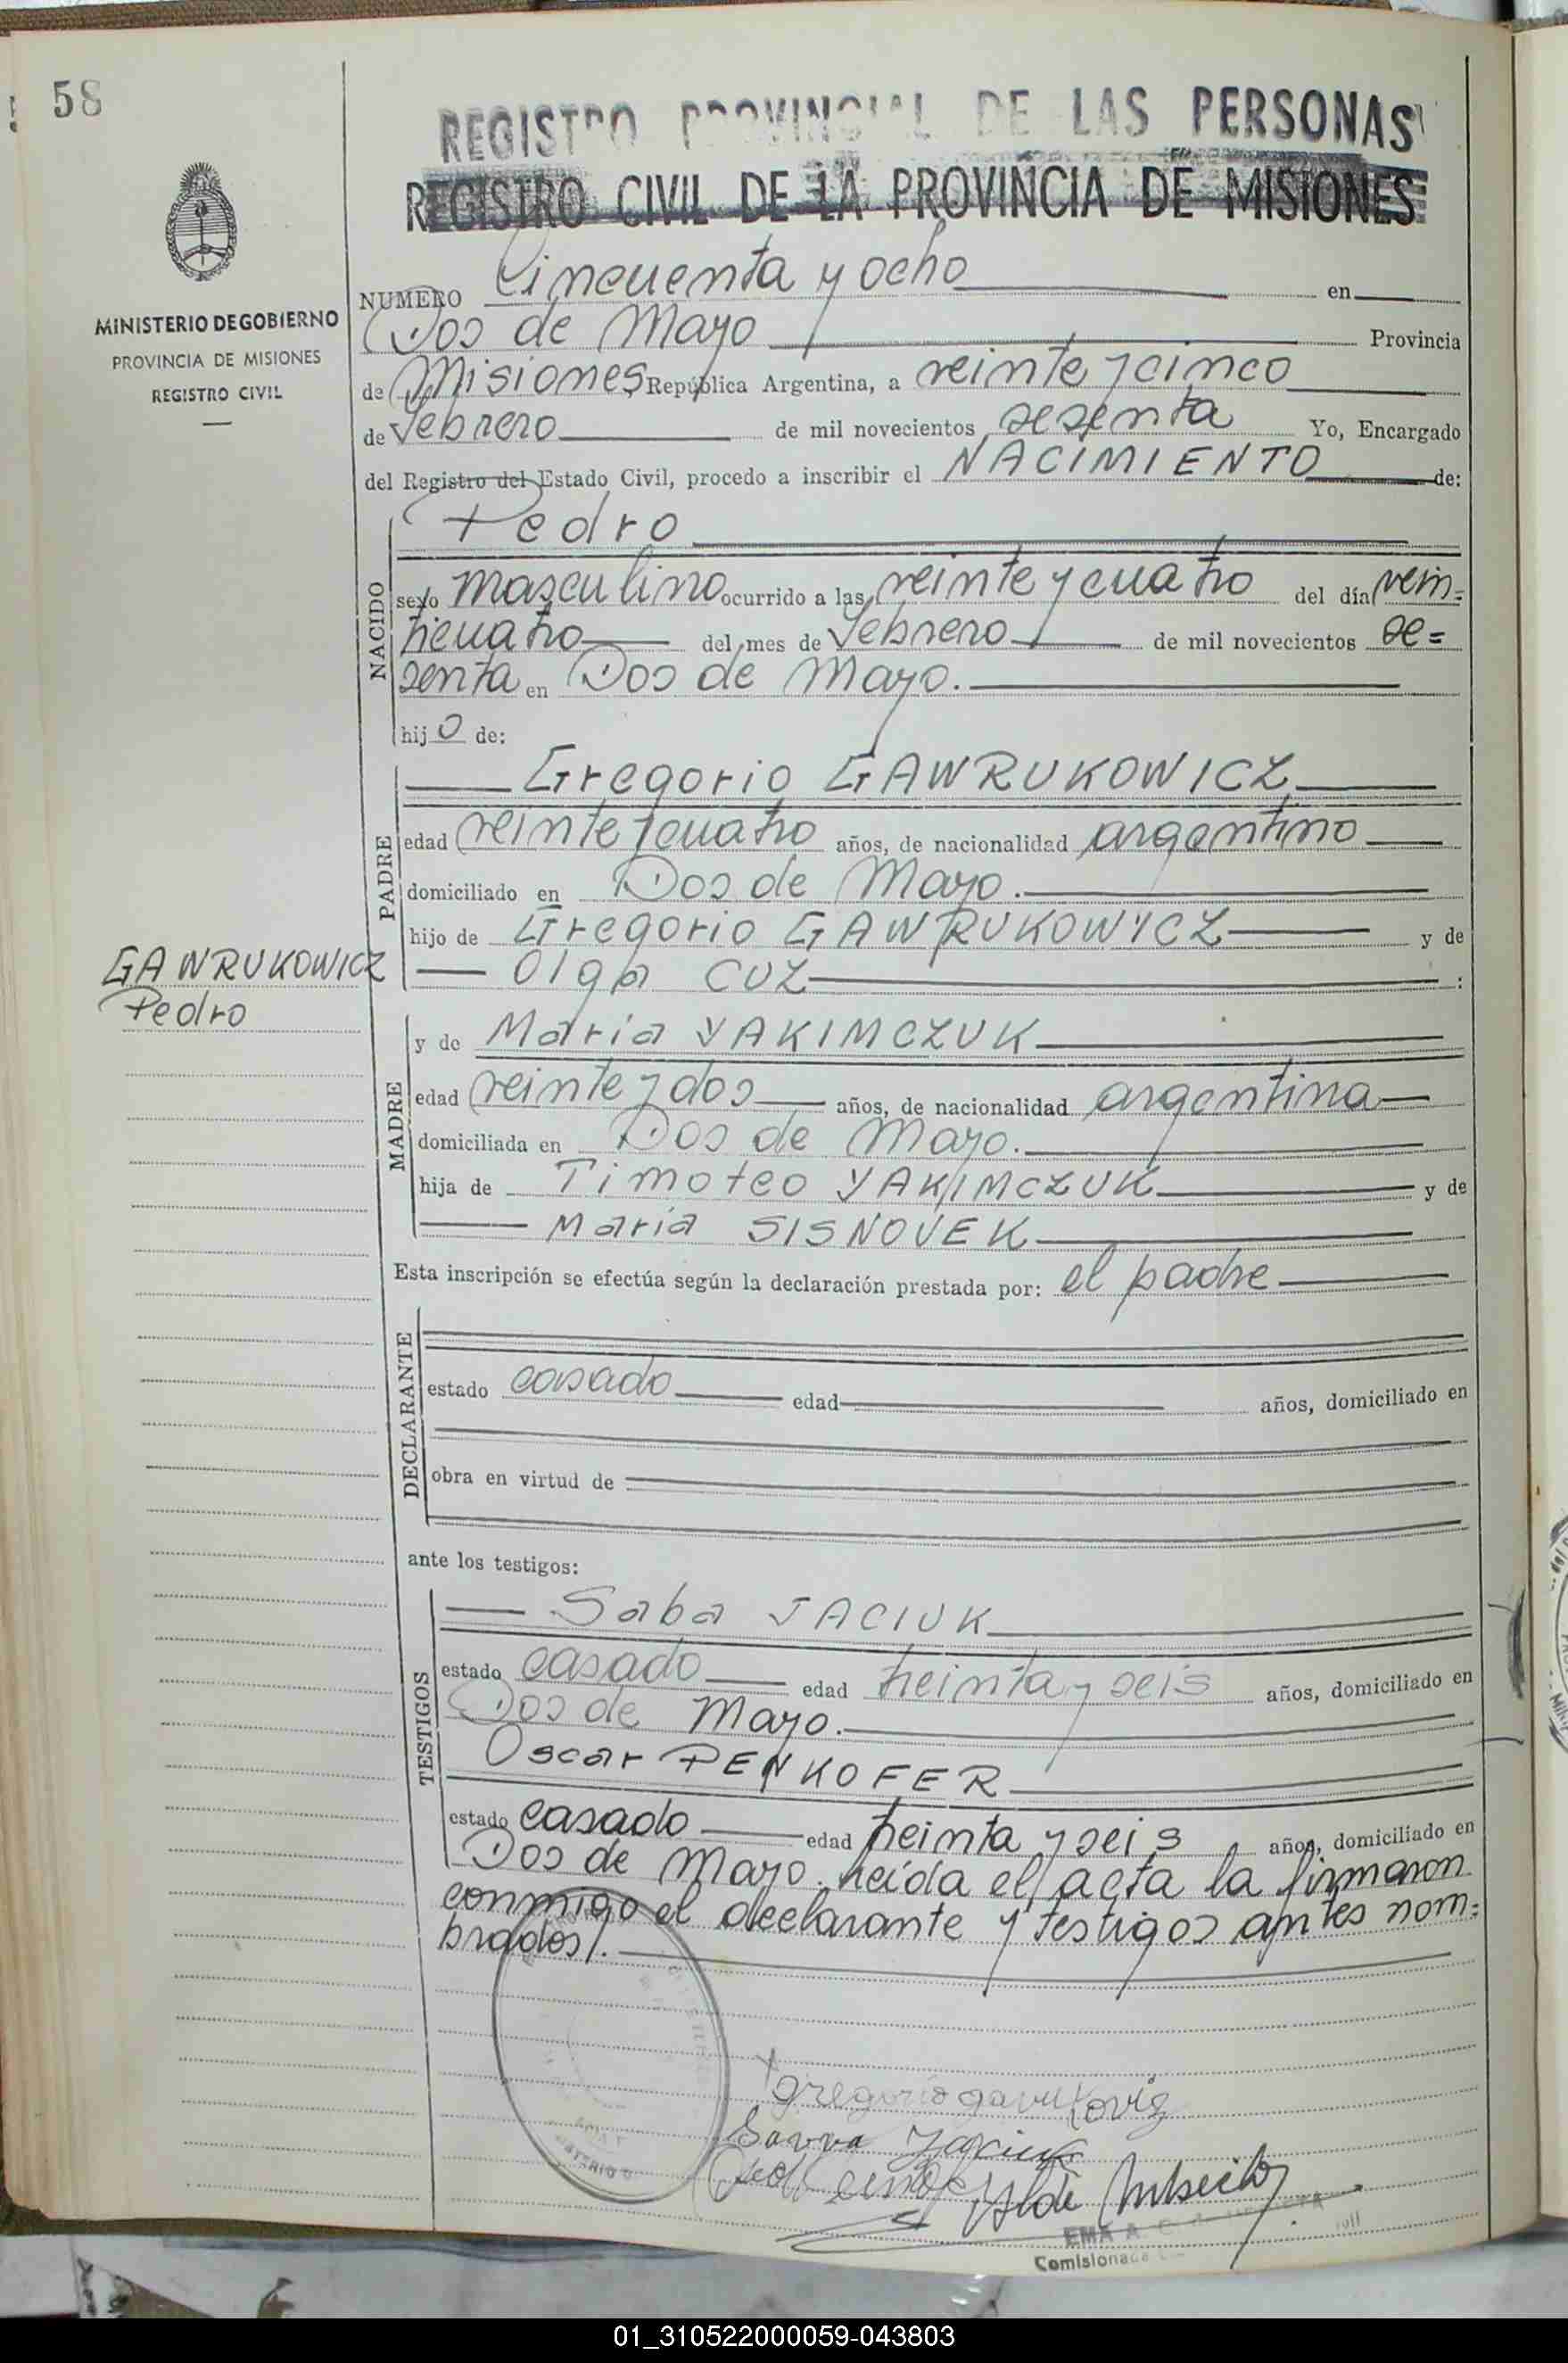 58
REGISTRO PROVINCIAL DE LAS PERSONAS
REGISTRO CIVIL DE LA PROVINCIA DE MISIONES
MINISTERIO DE GOBIERNO
PROVINCIA DE MISIONES
REGISTRO CIVIL
NUMERO Cincuenta y ocho en
Dos de Mayo Provincia
de Misiones, República Argentina, a veinte y cinco
de Febrero de mil novecientos sesenta Yo, Encargado
del Registro del Estado Civil, procedo a inscribir el NACIMIENTO de:
NACIDO
Pedro
sexo masculino ocurrido a las veinte y cuatro del día vein=
ticuatro del mes de Febrero de mil novecientos se=
senta en Dos de Mayo.
hijo de:
PADRE
Gregorio GAWRUKOWICZ
edad veinte y cuatro años, de nacionalidad argentino
domiciliado en Dos de Mayo.
hijo de Gregorio GAWRUKOWICZ y de
Olga CUZ
GAWRUKOWICZ
Pedro
MADRE
y de Maria YAKIMCZUK
edad veinte y dos años, de nacionalidad argentina
domiciliada en Dos de Mayo.
hija de Timoteo YAKIMCZUK y de
Maria SISNOVEK
Esta inscripción se efectúa según la declaración prestada por: el padre
DECLARANTE
estado casado edad años, domiciliado en
obra en virtud de
ante los testigos:
TESTIGOS
Saba JACIUK
estado casado edad treinta y seis años, domiciliado en
Dos de Mayo.
Oscar PENKOFER
estado casado edad treinta y seis años, domiciliado en
Dos de Mayo. Leída el acta la firmaron
conmigo el declarante y testigos antes nom=
brados/.
gregorio gavrukoviz
Savva
EMA A.
Comisionada
01_310522000059-043803